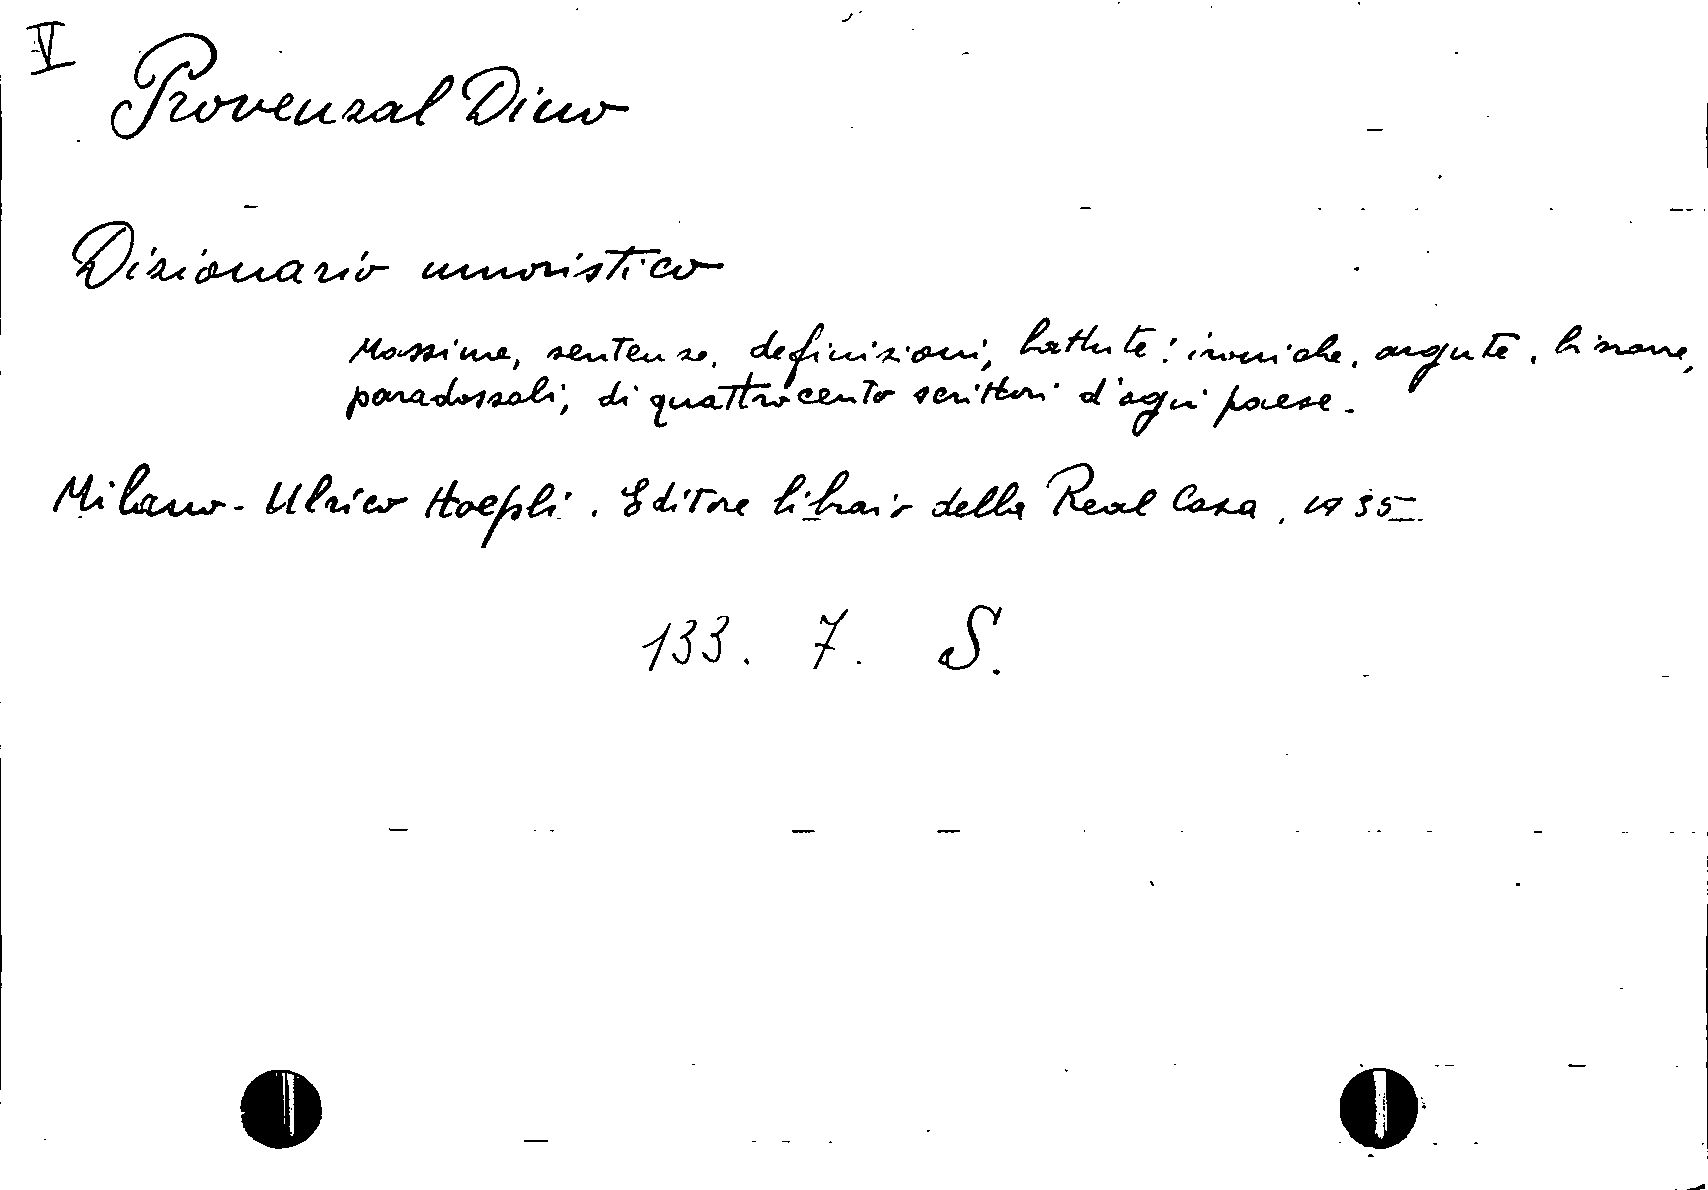 V
Provenzal Dino
Dizionario umoristico
Massime, sentenze, definizioni, battute: ironiche, argute, bizzarre,
paradossali, di quattrocento scrittori d'ogni paese.
Milano - Ulrico Hoepli. Editore libraio della Real Casa, 1935
133. 7. S.